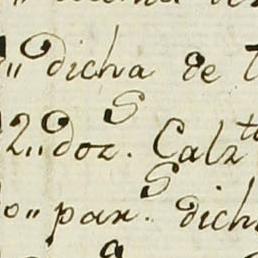 dicha de
12,, doz.s Calz.to
o,, par.s dich